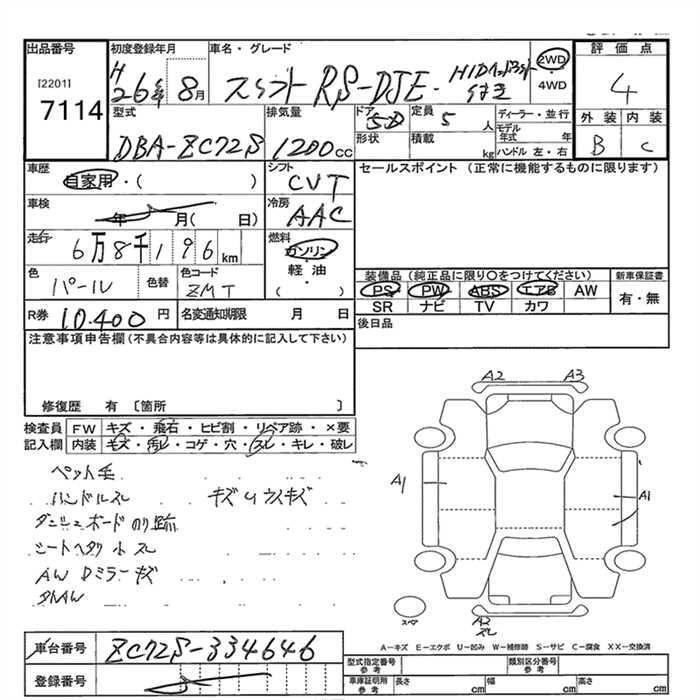 出品番号 [2201] 7114
初度登録年月 H 26年 8月
車名・グレード スイフト RS-DJE・HIDヘッドライト付き
2WD ・ 4WD
評価点 4
外装 B 内装 C
型式 DBA-ZC72S
排気量 1200cc
ドア 5D 形状
定員 5人 積載 kg
ディーラー・並行
モデル年式 年
ハンドル 左・右
車歴 自家用・( )
シフト CVT
セールスポイント (正常に機能するものに限ります)
車検 年 月( 日)
冷房 AAC
走行 6万8千196km
燃料 ガソリン・軽油・( )
色 パール 色替
色コード ZMT
装備品(純正品に限り○をつけてください) 新車保証書
PS PW ABS エアB AW 有・無
SR ナビ TV カワ
R券 10,400円 名変通知期限 月 日
後日品
注意事項申告欄(不具合内容等は具体的に記入して下さい)
修復歴 有 〔箇所 〕
検査員 FW キズ・飛石・ヒビ割・リペア跡・×要
記入欄 内装 キズ・汚レ・コゲ・穴・スレ・キレ・破レ
ペット毛
ハンドルスレ キズUウスキズ
ダッシュボードのり跡
シートヘタリ小スレ
AW Dミラーキズ
タトAW
A2 A3
A1 A1
スペア
A2 スレ
A-キズ E-エクボ U-凹み W-補修跡 S-サビ C-腐食 XX-交換済
車台番号 ZC72S-334646
登録番号
型式指定番号 参考 類別区分番号 参考
車庫証明用 参考 長さ cm 幅 cm 高さ cm